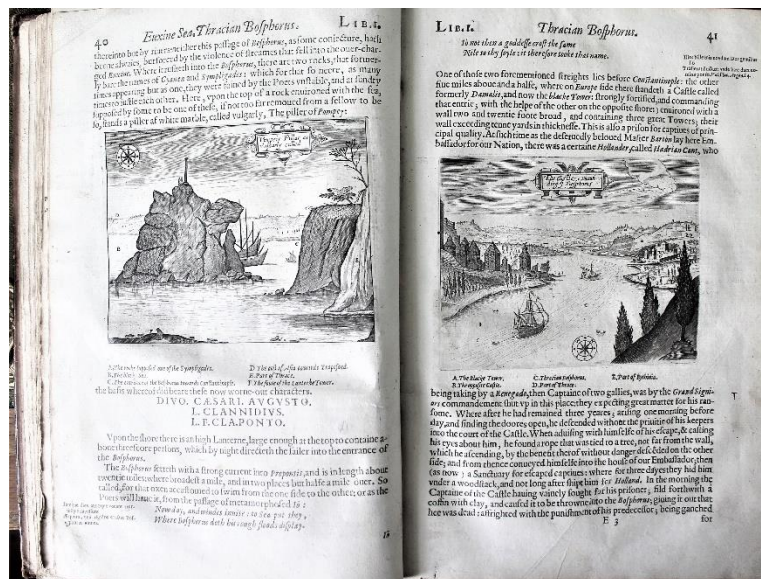 40
Euxine Sea. Thracian Bosphorus.
LIB. I.
thereinto but by
this passage of Bosphorus, as some conjecture, hath
beene
by the violence of streames that fell into the over-char-
ged Euxine. Where it
into the Bosphorus, there are two rocks, that former-
ly bare the names of Cyanea and Symplegades: which for that so neere, as many
times appearing but as one, they were fained by the Poets unstable, and at sundry
times to justle each other. Here, upon the top of a rock environed with the sea,
supposed by some to be one of these, if not too far removed from a fellow to be
so, stands a piller of white marble, called vulgarly, The piller of Pompey:
Pompeys Pillar
D. The coast of Asia towards Trapesond.
B. The black sea.
E. Part of Thrace.
C. The entrance of the Bosphorus towards Constantinople.
F. The
of the Lanterne Tower.
the basis whereof
these now worne-out characters.
DIVO. CÆSARI. AVGVSTO.
L. CLANNIDIVS.
L. F. CLA. PONTO.
Upon the shore there is an high Lanterne, large enough at the top to containe a-
bove threescore persons, which by night directeth the sailer into the entrance of
the Bosphorus.
The Bosphorus setteth with a strong current into Propontis, and is in length about
twentie miles: where broadest a mile, and in two places but halfe a mile over. So
called, for that oxen accustomed to swim from the one side to the other; or as the
Poets will have it, from the passage of metamorphosed Iö:
Now day, and windes invite: to sea put they,
Where Bosphorus doth his rough floods display.
LIB. I.
Thracian Bosphorus.
41
Iö not then a goddesse crost the same
Nile to thy soyle: it therefore tooke that name.
One of those two forementioned streights lies before Constantinople: the other
five miles above and a halfe, where on Europe side there standeth a Castle called
formerly Damalis, and now the blacke Tower: strongly fortified, and commanding
that entrie; with the helpe of the other on the opposite shore; environed with a
wall two and twentie foote broad, and containing three great Towers; their
wall exceeding tenne yards in thicknesse. This is also a prison for captives of prin-
cipall quality. At such time as the deservedly beloved Master Barton lay here Em-
bassador for our Nation, there was a certaine Hollander, called Hadrian Cant, who
The Castles
Bosphorus
A. The Blacke Tower.
C. Thracian Bosphorus.
E. Part of Bythinia.
B. The opposite Castle.
D. Part of Thrace.
being taking by a Renegado, then Captaine of two gallies, was by the Grand Signi-
ors commandement shut up in this place; they expecting great matter for his ran-
some. Where after he had remained three yeares; arising one morning before
day, and finding the doores open, he descended without the privitie of his keepers
into the court of the Castle. When advising with himselfe of his escape, & casting
his eyes about him, he found a rope that was tied to a tree, not far from the wall,
which he ascending, by the benefit thereof without danger descended on the other
side; and from thence convayed himselfe into the house of our Embassador; then
(as now) a Sanctuary for escaped captives: where for three dayes they hid him
under a woodstack, and not long after shipt him for Holland. In the morning the
Captaine of the Castle having vainly sought for his prisoner, fild forthwith a
coffin with clay, and caused it to be throwne into the Bosphorus; giving it out that
hee was dead: affrighted with the punishment of his predecessor; being ganched
E 3
for